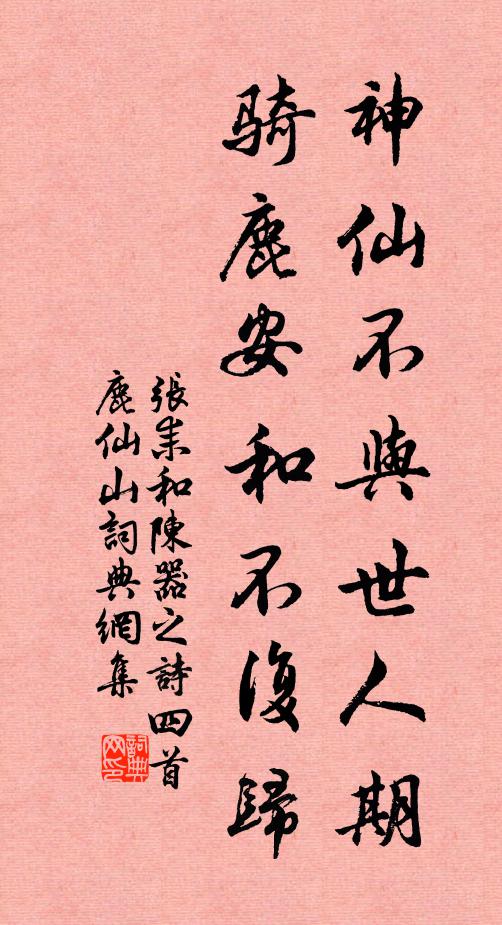 神仙不與世人期
騎鹿安和不復歸
張耒和陳器之詩四首
鹿仙山詞典網集
詞典网印